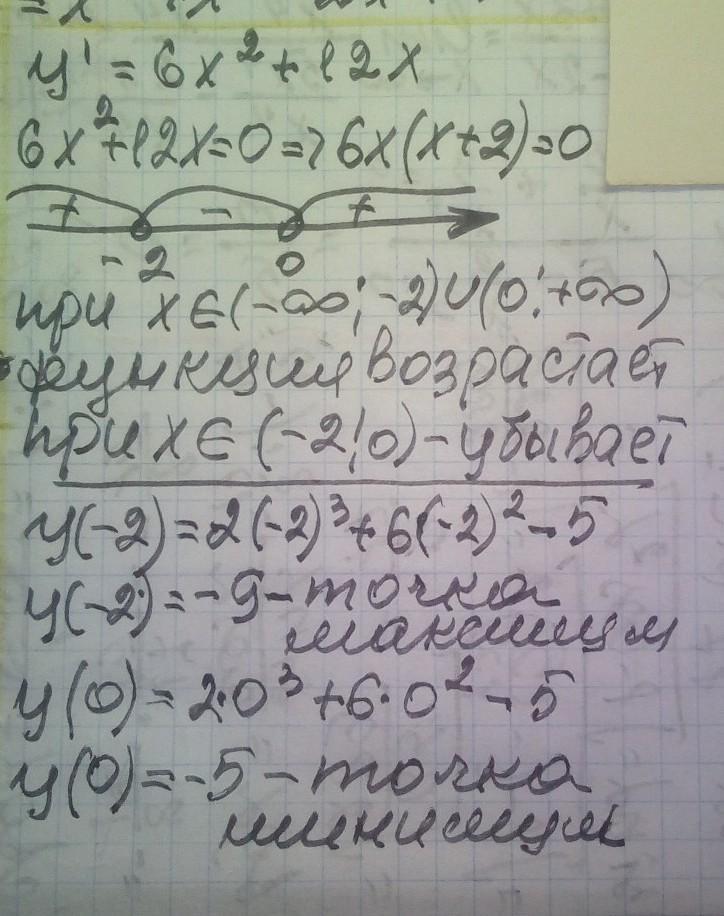 y' = 6x² + 12x
6x² + 12x = 0 => 6x(x+2) = 0
+ - +
-2 0
при x ∈ (-∞; -2) ∪ (0; +∞)
функция возрастает
при x ∈ (-2; 0) - убывает
y(-2) = 2(-2)³ + 6(-2)² - 5
y(-2) = -9 - точка
максимум
y(0) = 2·0³ + 6·0² - 5
y(0) = -5 - точка
минимум